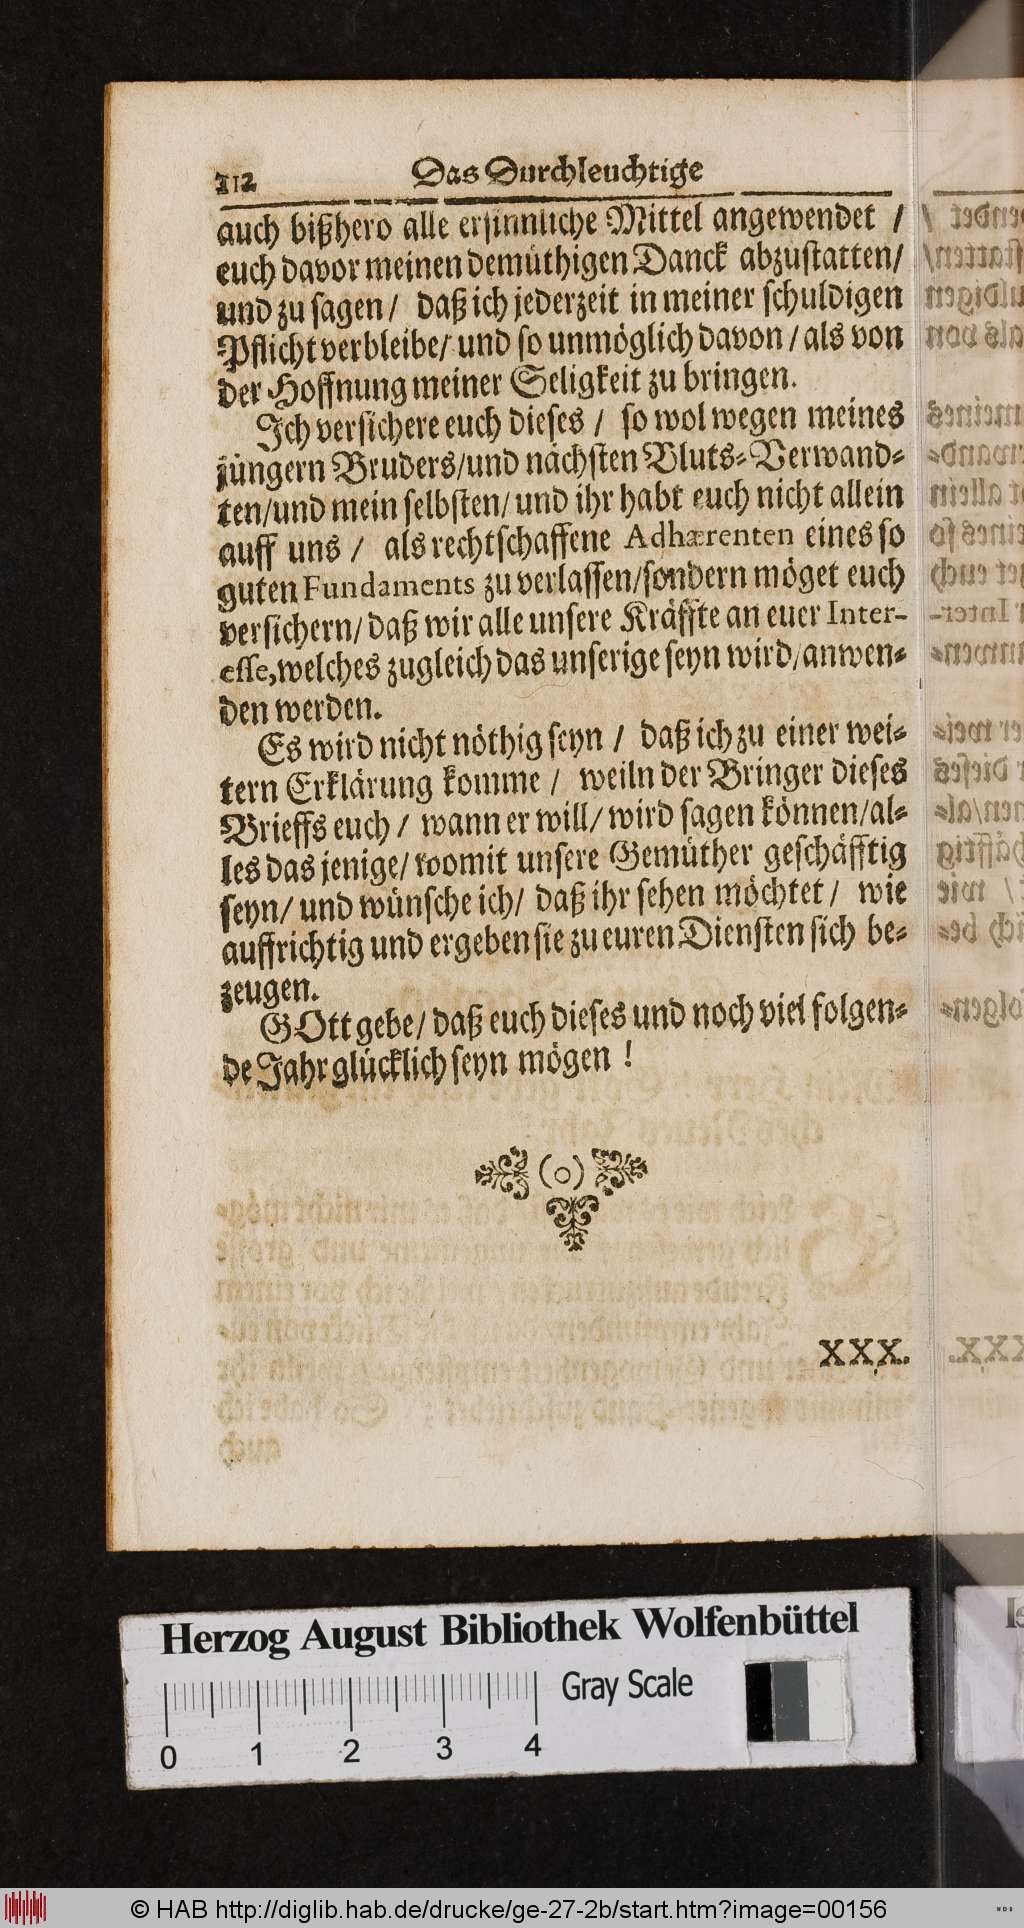 112
Das Durchleuchtige
auch bißhero alle ersinnliche Mittel angewendet /
euch davor meinen demüthigen Danck abzustatten/
und zu sagen / daß ich jederzeit in meiner schuldigen
Pflicht verbleibe/ und so unmöglich davon / als von
der Hoffnung meiner Seligkeit zu bringen.
Ich versichere euch dieses / so wol wegen meines
jüngern Bruders/und nächsten Bluts-Verwand-
ten/und mein selbsten/ und ihr habt euch nicht allein
auff uns / als rechtschaffene Adhærenten eines so
guten Fundaments zu verlassen/sondern möget euch
versichern/ daß wir alle unsere Kräffte an euer Inter-
esse, welches zugleich das unserige seyn wird/anwen-
den werden.
Es wird nicht nöthig seyn / daß ich zu einer wei-
tern Erklärung komme / weiln der Bringer dieses
Brieffs euch / wann er will/ wird sagen können/al-
les das jenige/ womit unsere Gemüther geschäfftig
seyn/ und wünsche ich/ daß ihr sehen möchtet / wie
auffrichtig und ergeben sie zu euren Diensten sich be-
zeugen.
GOtt gebe/ daß euch dieses und noch viel folgen-
de Jahr glücklich seyn mögen !
(o)
XXX.
Herzog August Bibliothek Wolfenbüttel
Gray Scale
0 1 2 3 4
© HAB http://diglib.hab.de/drucke/ge-27-2b/start.htm?image=00156